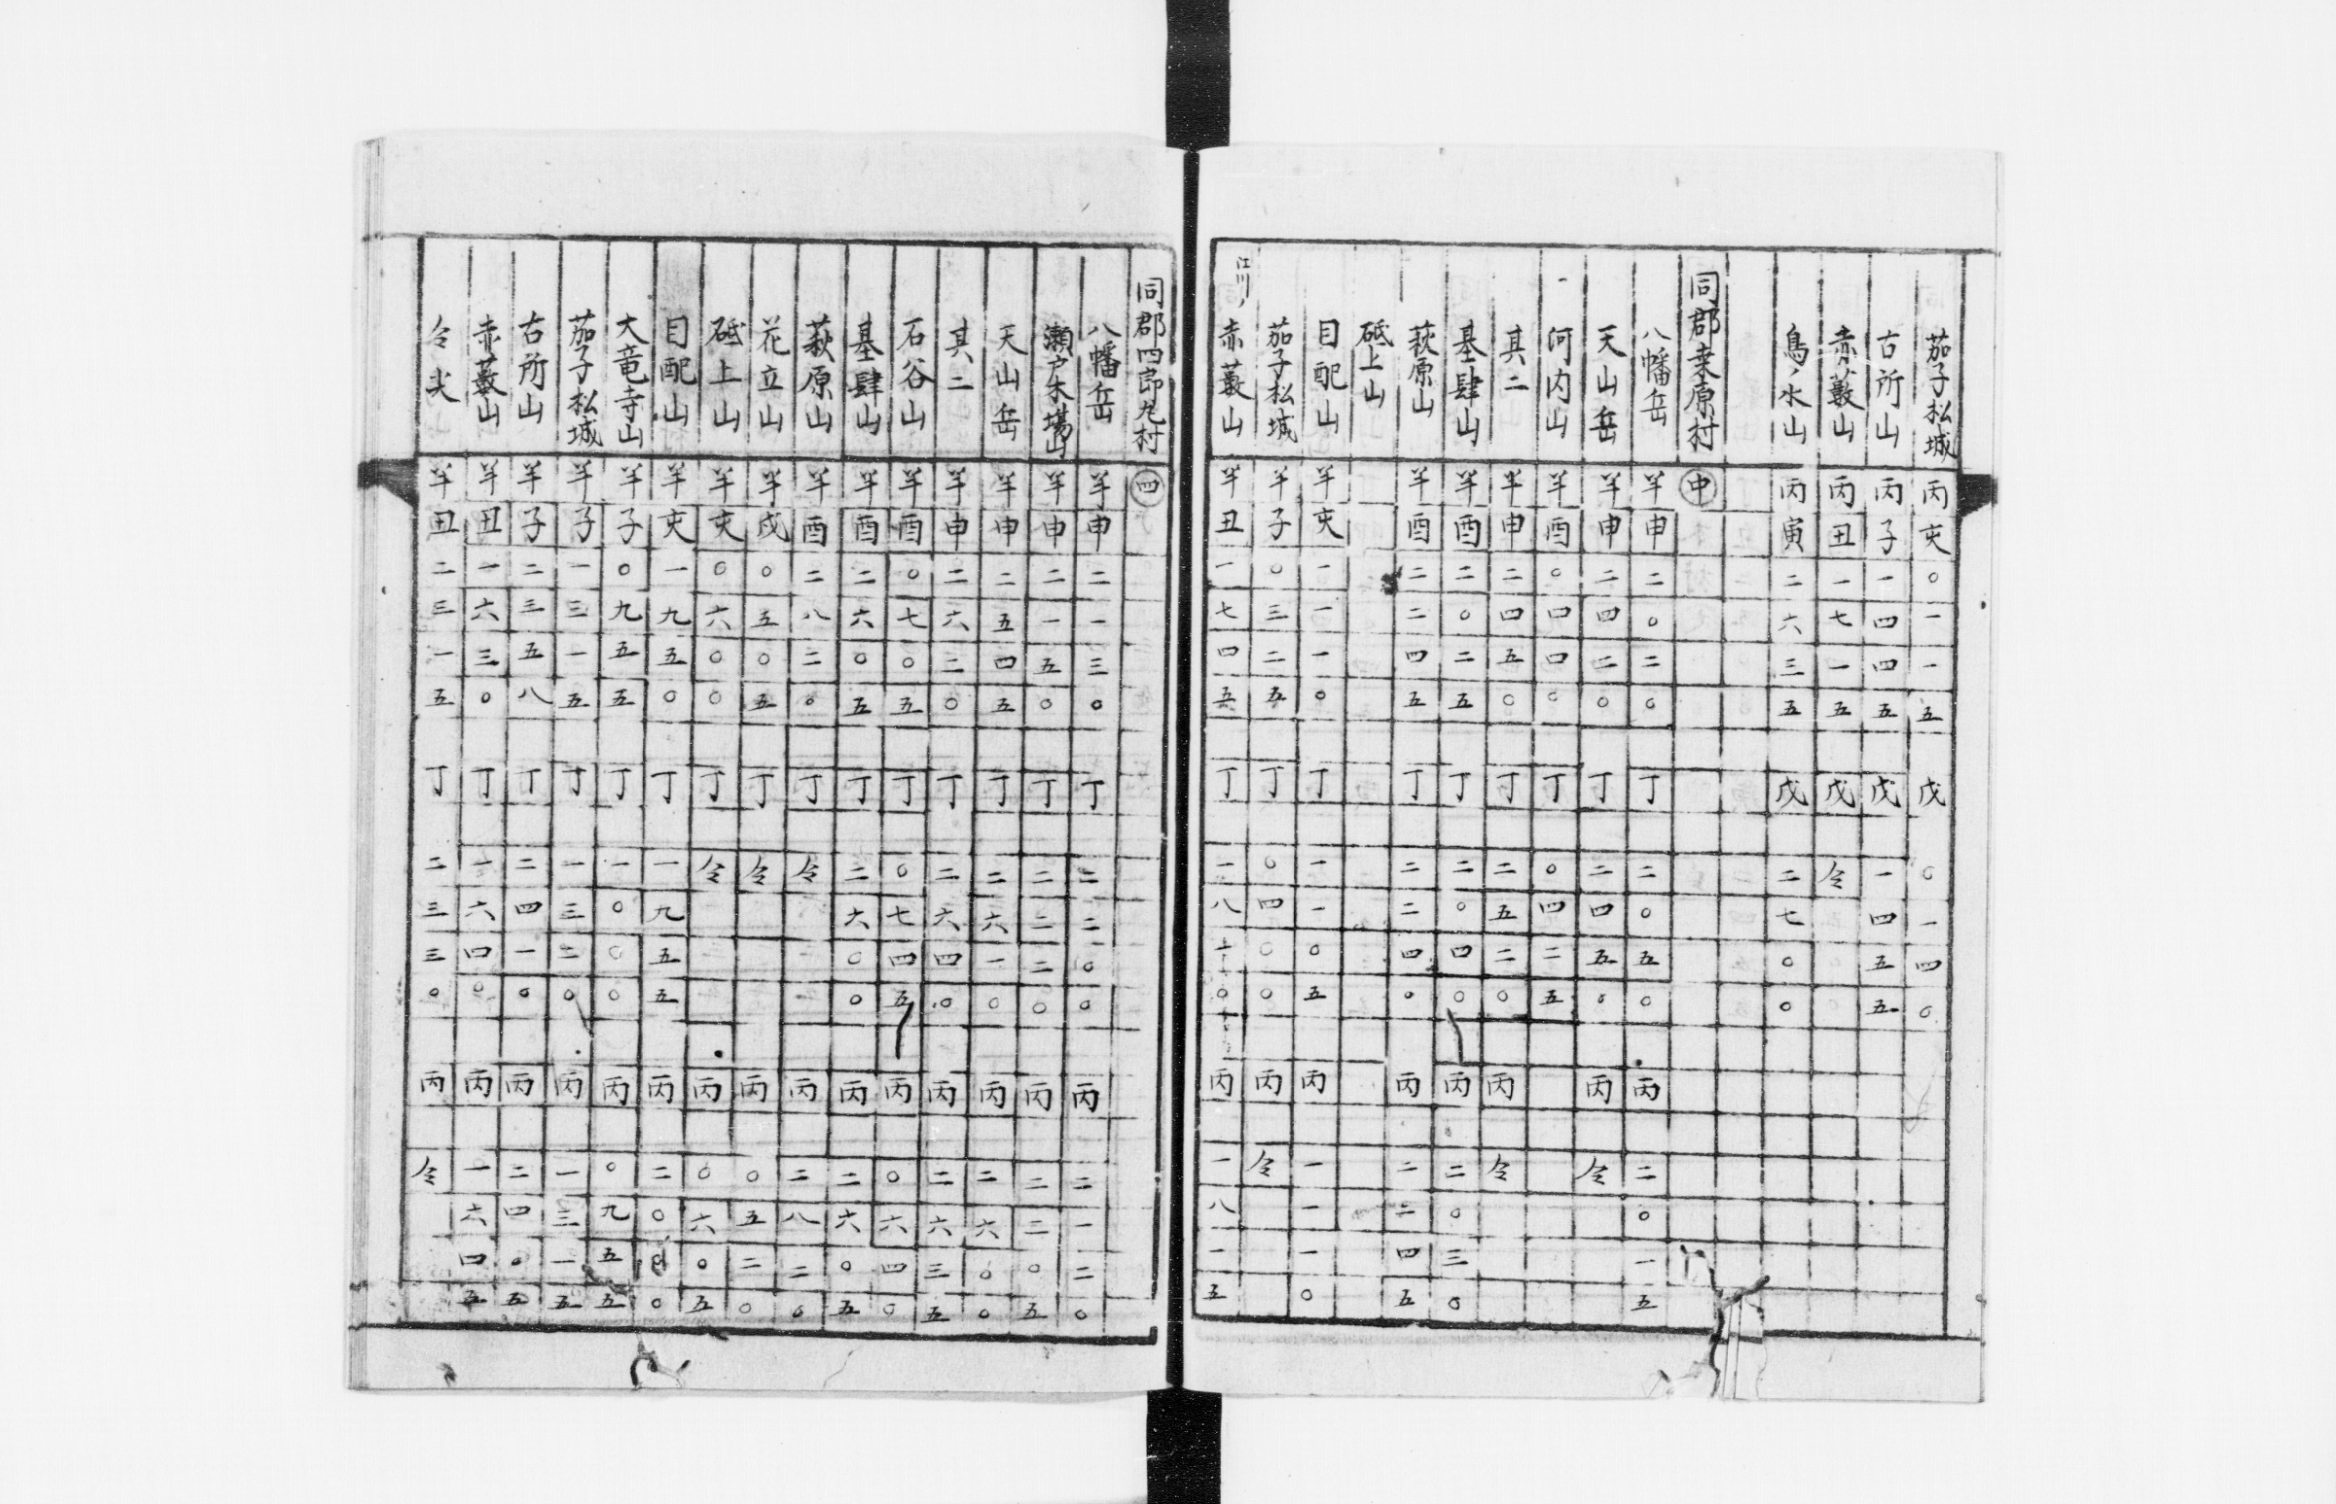 茄子松城 丙亥 〇一一五 戊 〇一四〇
古所山 丙子 一四四五 戊 一四五五
赤藪山 丙丑 一七一五 戊 仝
鳥ノ水山 丙寅 二六三五 戊 二七〇〇
同郡桒原村 申
八幡岳 羊申 二〇二〇 丁 二〇五〇 丙 二〇一五
天山岳 羊申 二四二〇 丁 二四五〇 丙 仝
河内山 羊酉 〇四四〇 丁 〇四二五
其二 羊申 二四五〇 丁 二五二〇 丙 仝
基肆山 羊酉 二〇二五 丁 二〇四〇 丙 二〇三〇
萩原山 羊酉 二二四五 丁 二二四〇 丙 二二四五
砥上山
目配山 羊亥 一一一〇 丁 一一〇五 丙 一一一〇
茄子松城 羊子 〇三二五 丁 〇四〇〇 丙 仝
江川ノ赤藪山 羊丑 一七四五 丁 一八 〇 丙 一八一五
同郡四郎丸村 四
八幡岳 羊申 二一三〇 丁 二二〇〇 丙 二一二〇
瀬戸木場山 羊申 二一五〇 丁 二二二〇 丙 二二〇五
天山岳 羊申 二五四五 丁 二六一〇 丙 二六〇〇
其二 羊申 二六二〇 丁 二六四〇 丙 二六三五
石谷山 羊酉 〇七〇五 丁 〇七四五 丙 〇六四〇
基肆山 羊酉 二六〇五 丁 二六〇〇 丙 二六〇五
萩原山 羊酉 二八二〇 丁 仝 丙 二八二〇
花立山 羊戌 〇五〇五 丁 仝 丙 〇五二〇
砥上山 羊亥 〇六〇〇 丁 仝 丙 〇六〇五
目配山 羊亥 一九五〇 丁 一九五五 丙 二〇〇〇
大竜寺山 羊子 〇九五五 丁 一〇〇〇 丙 〇九五五
茄子松城 羊子 一三一五 丁 一三二〇 丙 一三一五
古所山 羊子 二三五八 丁 二四一〇 丙 二四〇五
赤藪山 羊丑 一六三〇 丁 一六四〇 丙 一六四五
仝尖 羊丑 二三一五 丁 二三三〇 丙 仝